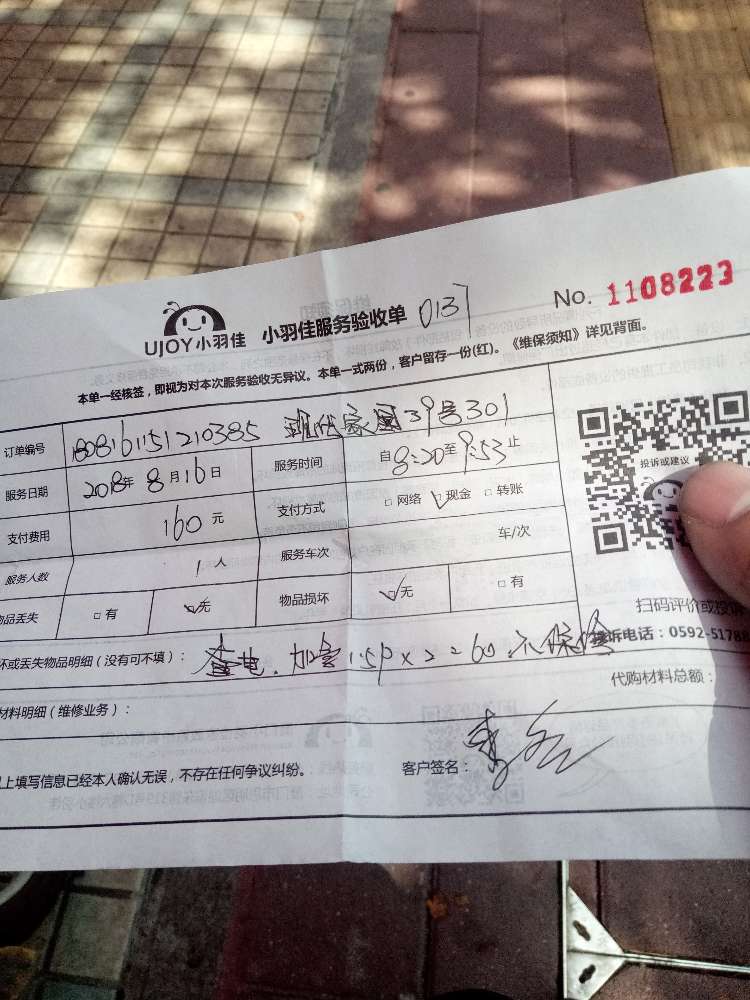 No. 1108223
UJOY小羽佳 小羽佳服务验收单 0137
本单一经核签，即视为对本次服务验收无异议。本单一式两份，客户留存一份(红)。《维保须知》详见背面。
订单编号 180816115121038５ 现代家园39号301
服务日期 2018年8月16日 服务时间 自8:20至9:53止
支付费用 160元 支付方式 □网络 ☑现金 □转账
服务人数 1人 服务车次 车/次
品丢失 □有 ☑无 物品损坏 ☑无 □有
投诉或建议
扫码评价或投
诉电话：0592-5178
坏或丢失物品明细（没有可不填）： 查电．加雪1.5P×2=60．不保
代购材料总额：
材料明细（维修业务）：
上填写信息已经本人确认无误，不存在任何争议纠纷。 客户签名：